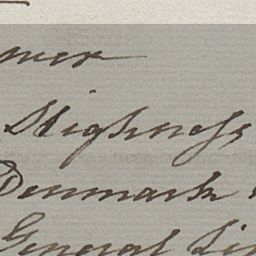 Highness
Denmark
General